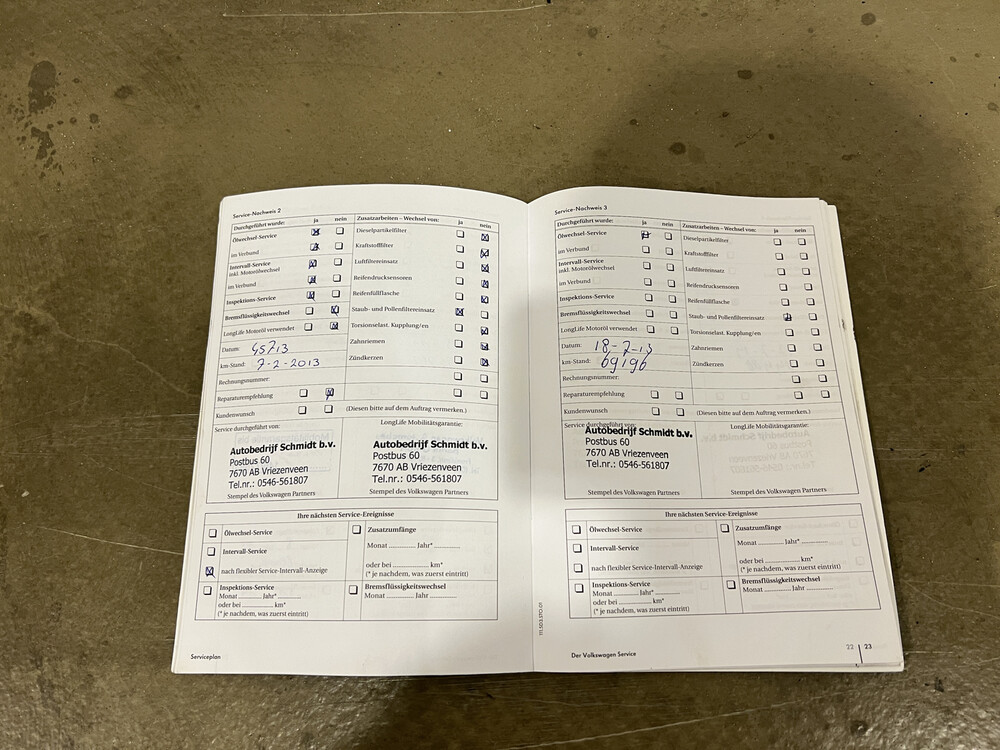 Service-Nachweis 2
Durchgeführt wurde: ja nein
Zusatzarbeiten – Wechsel von: ja nein
Ölwechsel-Service
Dieselpartikelfilter
im Verbund
Kraftstofffilter
Intervall-Service
inkl. Motorölwechsel
Luftfiltereinsatz
im Verbund
Reifendrucksensoren
Inspektions-Service
Reifenfüllflasche
Bremsflüssigkeitswechsel
Staub- und Pollenfiltereinsatz
LongLife Motoröl verwendet
Torsionselast. Kupplung/en
Datum: 45713
Zahnriemen
km-Stand: 7-2-2013
Zündkerzen
Rechnungsnummer:
Reparaturempfehlung
Kundenwunsch
(Diesen bitte auf dem Auftrag vermerken.)
Service durchgeführt von:
LongLife Mobilitätsgarantie:
Autobedrijf Schmidt b.v.
Postbus 60
7670 AB Vriezenveen
Tel.nr.: 0546-561807
Autobedrijf Schmidt b.v.
Postbus 60
7670 AB Vriezenveen
Tel.nr.: 0546-561807
Stempel des Volkswagen Partners
Stempel des Volkswagen Partners
Ihre nächsten Service-Ereignisse
Ölwechsel-Service
Intervall-Service
nach flexibler Service-Intervall-Anzeige
Zusatzumfänge
Monat ............ Jahr* ............
oder bei ............ km*
(* je nachdem, was zuerst eintritt)
Inspektions-Service
Monat ............ Jahr* ............
oder bei ............ km*
(* je nachdem, was zuerst eintritt)
Bremsflüssigkeitswechsel
Monat ............ Jahr ............
Serviceplan
Service-Nachweis 3
Durchgeführt wurde: ja nein
Zusatzarbeiten – Wechsel von: ja nein
Ölwechsel-Service
Dieselpartikelfilter
im Verbund
Kraftstofffilter
Intervall-Service
inkl. Motorölwechsel
Luftfiltereinsatz
im Verbund
Reifendrucksensoren
Inspektions-Service
Reifenfüllflasche
Bremsflüssigkeitswechsel
Staub- und Pollenfiltereinsatz
LongLife Motoröl verwendet
Torsionselast. Kupplung/en
Datum: 18-7-13
Zahnriemen
km-Stand: 69196
Zündkerzen
Rechnungsnummer:
Reparaturempfehlung
Kundenwunsch
(Diesen bitte auf dem Auftrag vermerken.)
Service durchgeführt von:
LongLife Mobilitätsgarantie:
Autobedrijf Schmidt b.v.
Postbus 60
7670 AB Vriezenveen
Tel.nr.: 0546-561807
Stempel des Volkswagen Partners
Stempel des Volkswagen Partners
Ihre nächsten Service-Ereignisse
Ölwechsel-Service
Intervall-Service
nach flexibler Service-Intervall-Anzeige
Zusatzumfänge
Monat ............ Jahr* ............
oder bei ............ km*
(* je nachdem, was zuerst eintritt)
Inspektions-Service
Monat ............ Jahr* ............
oder bei ............ km*
(* je nachdem, was zuerst eintritt)
Bremsflüssigkeitswechsel
Monat ............ Jahr ............
Der Volkswagen Service
22 | 23